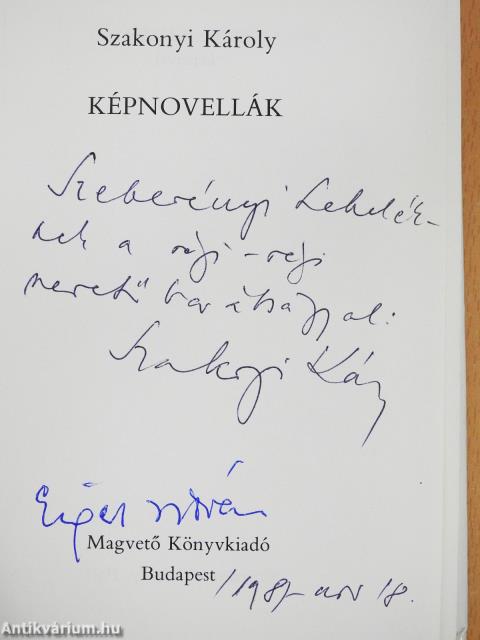 Szakonyi Károly
KÉPNOVELLÁK
Szeberényi Lehelék-
nek a régi-régi
szerető barátsággal:
Szakonyi Kár
István
Magvető Könyvkiadó
Budapest /1987 nov 18.
Antikvárium.hu